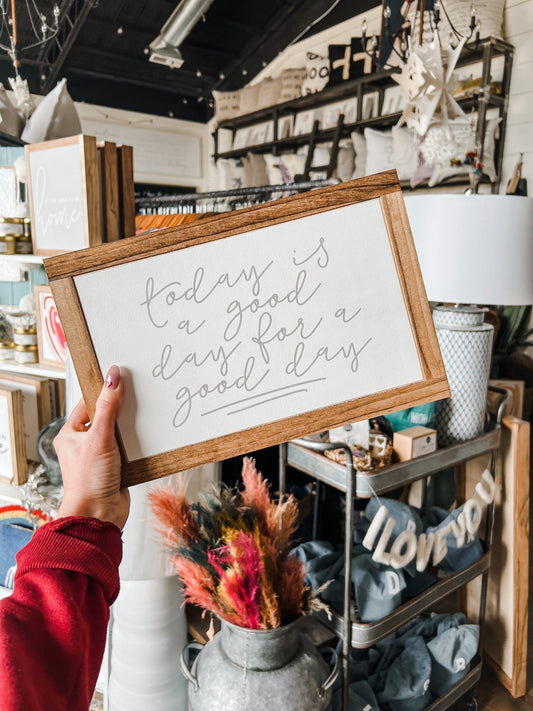 today is
a good
day for a
good day
home
I LOVE YOU